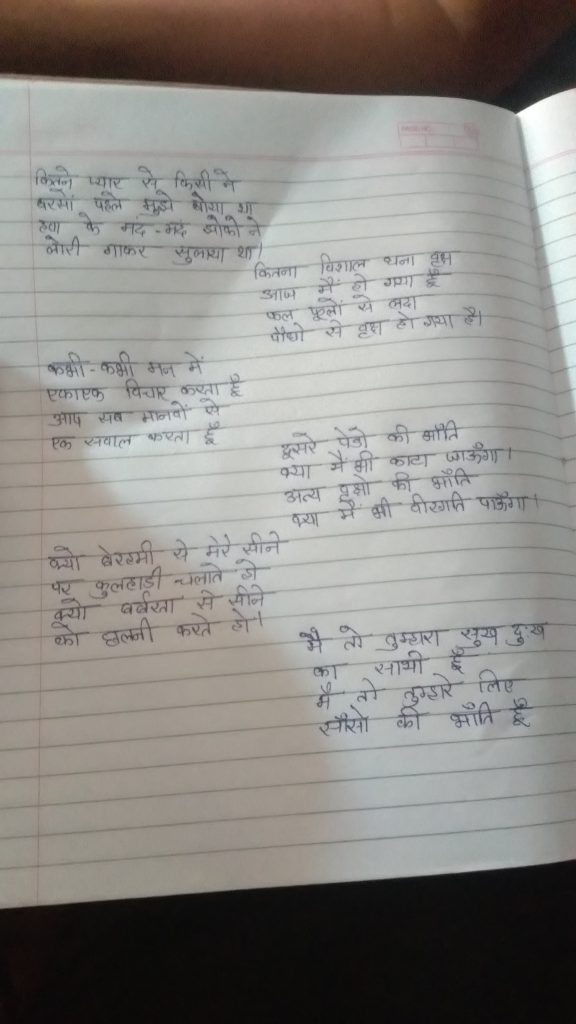 कितने प्यार से किसी ने
बरसों पहले मुझे बोया था
हवा के मंद-मंद झोंको ने
लोरी गाकर सुलाया था।
कितना विशाल घना वृक्ष
आज मैं हो गया हूँ
फल फूलों से लदा
पौधो से वृक्ष हो गया है।
कभी-कभी मन में
एकाएक विचार करता हूँ
आप सब मानवों से
एक सवाल करता हूँ
दूसरे पेडो की भाँति
क्या मैं भी काटा जाऊँगा।
अन्य वृक्षो की भाँति
क्या मैं भी वीरगति पाऊँगा।
क्यो बेरहमी से मेरे सीने
पर कुलहाडी चलाते हो
क्यो बर्बरता से सीने
को छलनी करते हो।
मै तो तुम्हारा सुख दुःख
का साथी हूँ
मैं तो तुम्हारे लिए
साँसो की भाँति हूँ